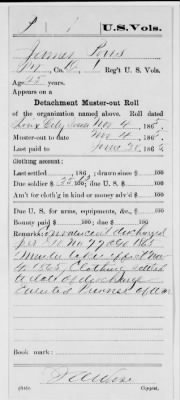 P | 1 | U.S. Vols.
James
Pvt., Co. , 1 Reg't U. S. Vols.
Age years.
Appears on a
Detachment Muster-out Roll
of the organization named above. Roll dated
Sioux City, Iowa Nov 4, 1865.
Muster-out to date Nov 4, 1865.
Last paid to June 30, 186
Clothing account:
Last settled , 186 ; drawn since $ 100
Due soldier $ 100; due U. S. $ 100
Am't for cloth'g in kind or money adv'd $ 100
Due U. S. for arms, equipments, &c., $ 100
Bounty paid $ 100; due $ 100
Remarks: discharged
per No 77 AGO 1865
Muster to effect Nov
4 1865, Clothing
to date of discharge
Book mark:
Copyist.